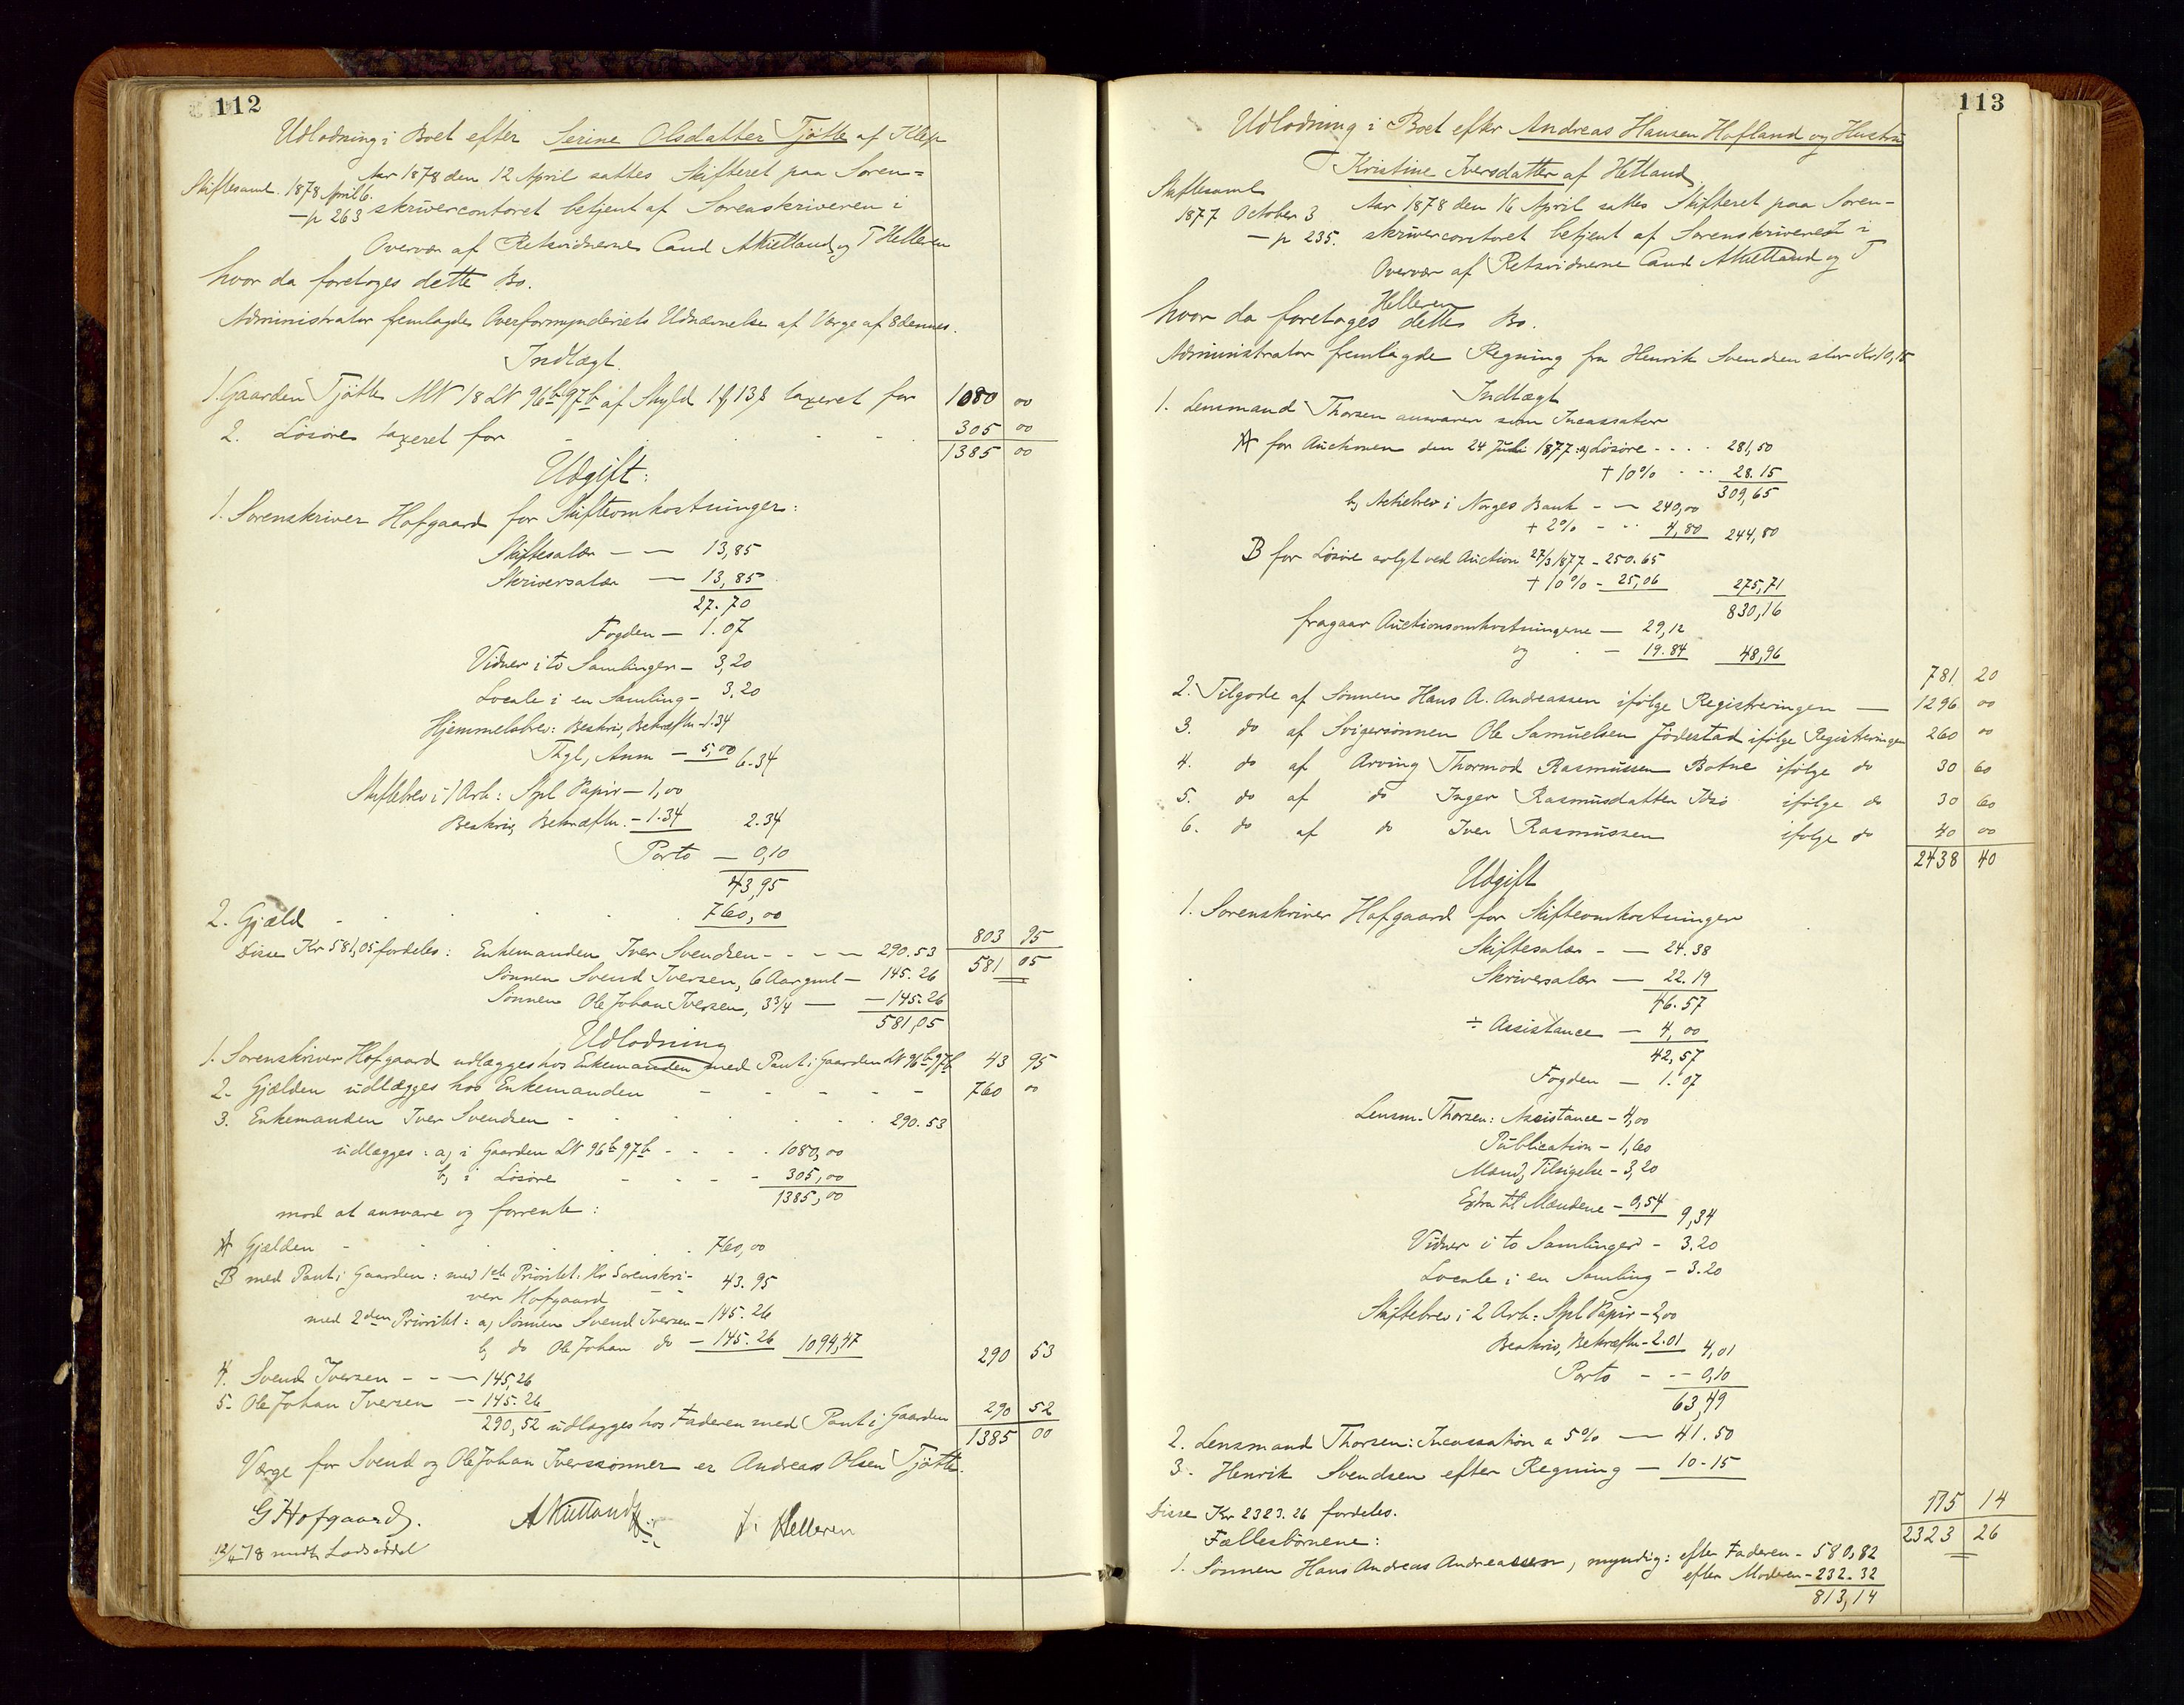 112
Udlodning i Boet efter Serine Olsdatter Tjøtte af Klep
Skiftesaml. 1878 April 6.
- p 263
Aar 1878 den 12 April sattes Skifteret paa Soren=
skrivercontoret betjent af Sorenskriveren i
Overvær af Retsvidnerne Cand AKielland og T Helleren
hvor da foretoges dette Bo.
Administrator fremlagde Overformynderiets Udnævnelse af Værge af 8 dennes.
Indtægt.
1. Gaarden Tjøtte MN 18 LN 96b 97b af Skyld 1 13 s taxeret for 1080 00
2. Løsøre taxeret for - - - 305 00
1385 00
Udgift:
1. Sorenskriver Hofgaard for Skifteomkostninger:
Skiftesalær — — 13,85
Skriversalær — 13,85
27.70
Fogden — 1.07
Vidner i to Samlinger - 3,20
Locale i en Samling - 3.20
Hjemmelsbrev: Beskriv, Bekræftn - 1.34
Thgl, Anm — 5,00 6.34
Skiftebrev i 1 Ark: Stpl Papir — 1,00
Beskriv, Bekræftn. - 1.34 2.34
Porto — 0,10
43,95
2. Gjæld - - - - 760,00
803 95
Disse Kr 581,05 fordeles: Enkemanden Iver Svendsen - - - — 290.53 581 05
Sønnen Svend Iversen, 6 Aar gml — 145.26
Sønnen Ole Johan Iversen, 3 3/4 — — 145.26
581,05
Udlodning
1. Sorenskriver Hofgaard udlægges hos Enkemanden med Pant i Gaarden LN 96b 97b 43 95
2. Gjælden udlægges hos Enkemanden - - - - 760 00
3. Enkemanden Iver Svendsen - - - - 290.53
udlægges: a, i Gaarden LN 96b 97b - - - 1080,00
b, i Løsøre - - - - 305,00
1385,00
mod at ansvare og forrente:
A Gjælden - - - - 760,00
B med Pant i Gaarden: med 1ste Prioritet: Hr Sorenskri-
ver Hofgaard - - 43.95
med 2den Prioritet: a, Sønnen Svend Iversen - 145.26
b, do Ole Johan do — 145.26 1094,47
290 53
4. Svend Iversen - - — 145,26
5. Ole Johan Iversen — 145.26
290,52 udlægges hos Faderen med Pant i Gaarden 290 52
1385 00
Værge for Svend og Ole Johan Iverssønner er Andreas Olsen Tjøtte.
G Hofgaard. AKielland T. Helleren
12/4 78 Lodseddel
113
Udlodning i Boet efter Andreas Hansen Hafland og Hustru
Kristine Iversdatter af Hetland
Skiftesaml
1877 October 3
- p 235.
Aar 1878 den 16 April sattes Skifteret paa Soren-
skrivercontoret betjent af Sorenskriveren i
Overvær af Retsvidnerne Cand AKielland og T
Helleren
hvor da foretoges dette Bo.
Administrator fremlagde Regning fra Henrik Svendsen stor Kr 10,15
Indtægt
1. Lensmand Thorsen ansvarer som Incassator
A for Auctionen den 24 Juli 1877: a, Løsøre - - - - 281,50
+ 10% - - - 28.15
309,65
b, Actiebrev i Norges Bank - — 240,00
+ 2% - - - 4,80 244,80
B for Løsøre solgt ved Auction 27/3 1877 - 250.65
+ 10% - 25,06 275,71
830,16
fragaar Auctionsomkostningerne — 29,12
og - — 19.84 48,96
781 20
2. Tilgode af Sønnen Hans A. Andreassen ifølge Registreringen — 1296 00
3. do af Svigersønnen Ole Samuelsen Jødestad ifølge Registreringen 260 00
4. do af Arving Thormod Rasmussen Botne ifølge do 30 60
5. do af do Inger Rasmusdatter Idsø ifølge do 30 60
6. do af do Iver Rasmussen ifølge do 40 00
2438 40
Udgift
1. Sorenskriver Hofgaard for Skifteomkostninger
Skiftesalær - — 24.38
Skriversalær — 22.19
46.57
÷ Assistance — 4,00
42,57
Fogden — 1.07
Lensm. Thorsen: Assistance - 4,00
Publication - 1,60
Mænd, Tilsigelse - 3,20
Extra til Mændene - 0,54 9,34
Vidner i to Samlinger - 3.20
Locale i en Samling - 3.20
Skiftebrev i 2 Ark: Stpl Papir - 2,00
Beskriv, Bekræftn - 2.01 4,01
Porto - - - 0,10
63,49
2. Lensmand Thorsen: Incassation a 5% — 41.50
3. Henrik Svendsen efter Regning — 10.15
115 14
Disse Kr 2323.26 fordeles. 2323 26
Fællesbørnene:
1. Sønnen Hans Andreas Andreassen, myndig: efter Faderen - 580,82
efter Moderen - 232.32
813,14